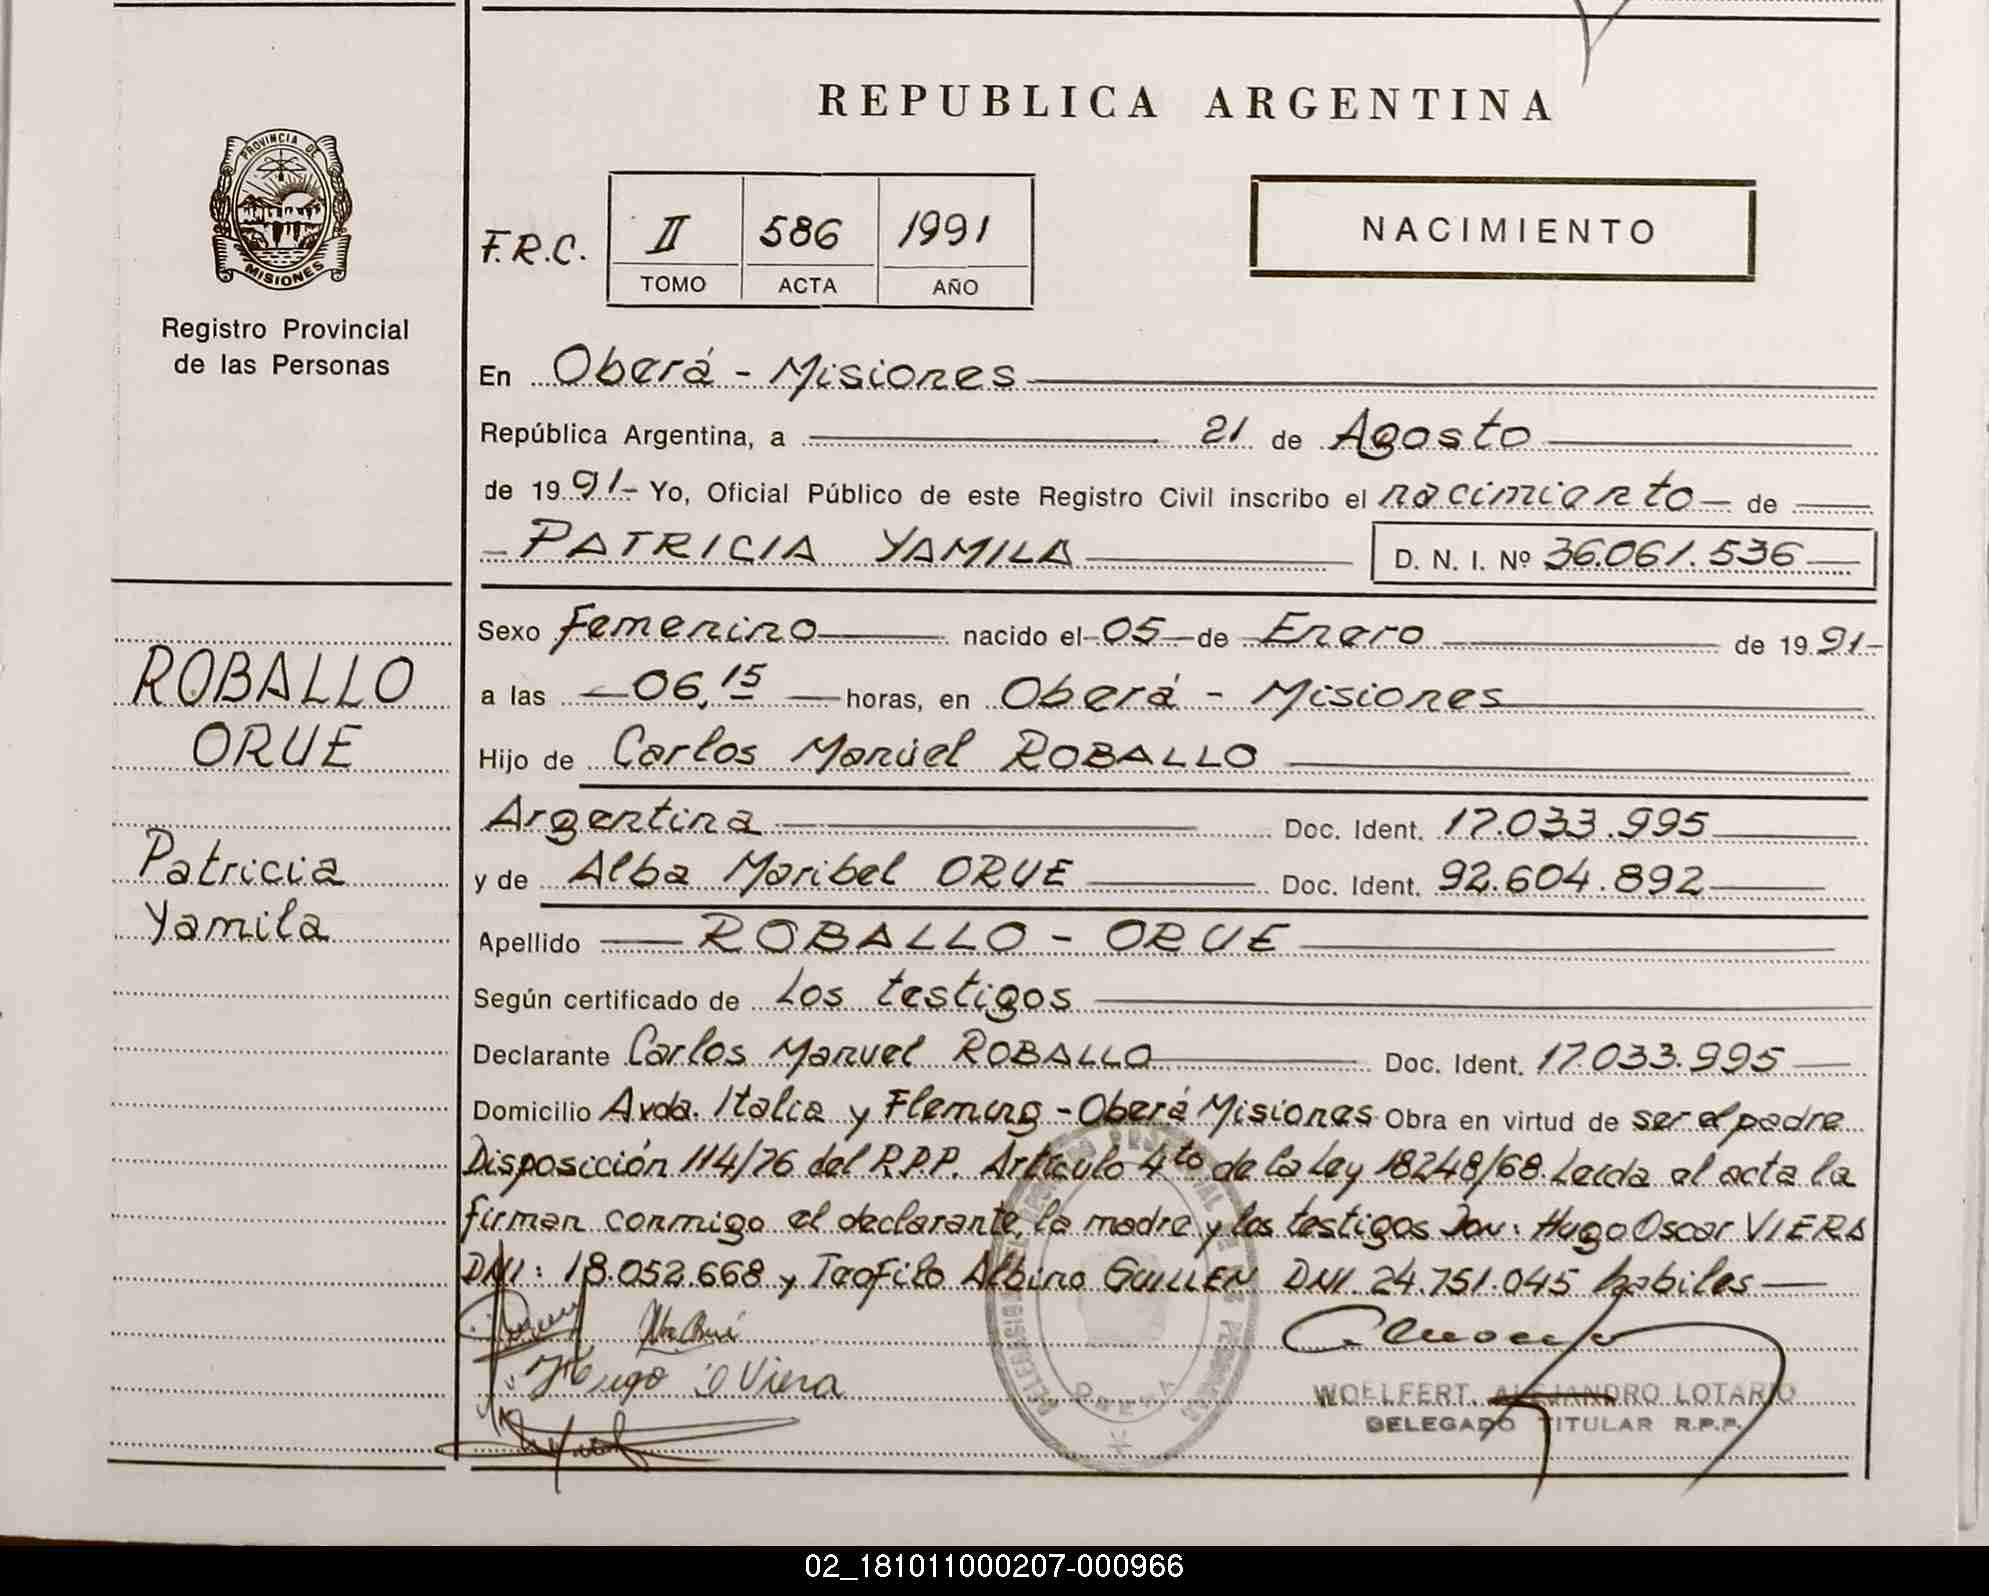 REPUBLICA ARGENTINA
PROVINCIA DE
MISIONES
Registro Provincial
de las Personas
F.R.C.
II 586 1991
TOMO ACTA AÑO
NACIMIENTO
En Oberá - Misiones
República Argentina, a 21 de Agosto
de 1991- Yo, Oficial Público de este Registro Civil inscribo el nacimiento de
PATRICIA YAMILA D. N. I. Nº 36.061.536
Sexo Femenino nacido el 05 de Enero de 1991-
a las 06,15 horas, en Oberá - Misiones
Hijo de Carlos Manuel ROBALLO
Argentina Doc. Ident. 17.033.995
y de Alba Maribel ORUE Doc. Ident. 92.604.892
Apellido ROBALLO - ORUE
Según certificado de Los testigos
Declarante Carlos Manuel ROBALLO Doc. Ident. 17.033.995
Domicilio Avda. Italia y Fleming - Oberá Misiones Obra en virtud de ser el padre
Disposición 114/76 del R.P.P. Artículo 4to de la Ley 18248/68. Leída el acta la
firman conmigo el declarante, la madre y los testigos Don: Hugo Oscar VIERA
DNI: 18.052.668 y Teofilo Albino GUILLEN DNI. 24.751.045 habiles
Hugo O Viera
WOELFERT, ALEJANDRO LOTARIO
DELEGADO TITULAR R.P.P.
ROBALLO
ORUE
Patricia
Yamila
02_181011000207-000966